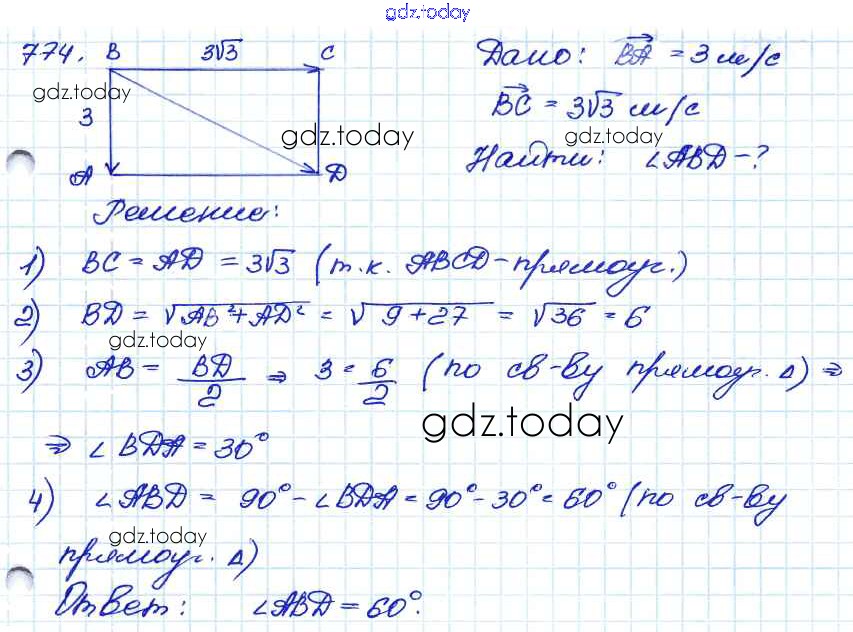 gdz.today
774. B 3√3 C
Дано: BA = 3 м/с
gdz.today
3
BC = 3√3 м/с
gdz.today
gdz.today
A D
Найти: ∠ABD - ?
Решение:
1) BC = AD = 3√3 (т.к. ABCD - прямоуг.)
2) BD = √AB² + AD² = √9 + 27 = √36 = 6
gdz.today
3) AB = BD/2 ⇒ 3 = 6/2 (по св-ву прямоуг. Δ) ⇒
gdz.today
⇒ ∠BDA = 30°
4) ∠ABD = 90° - ∠BDA = 90° - 30° = 60° (по св-ву
gdz.today
прямоуг. Δ)
Ответ: ∠ABD = 60°.